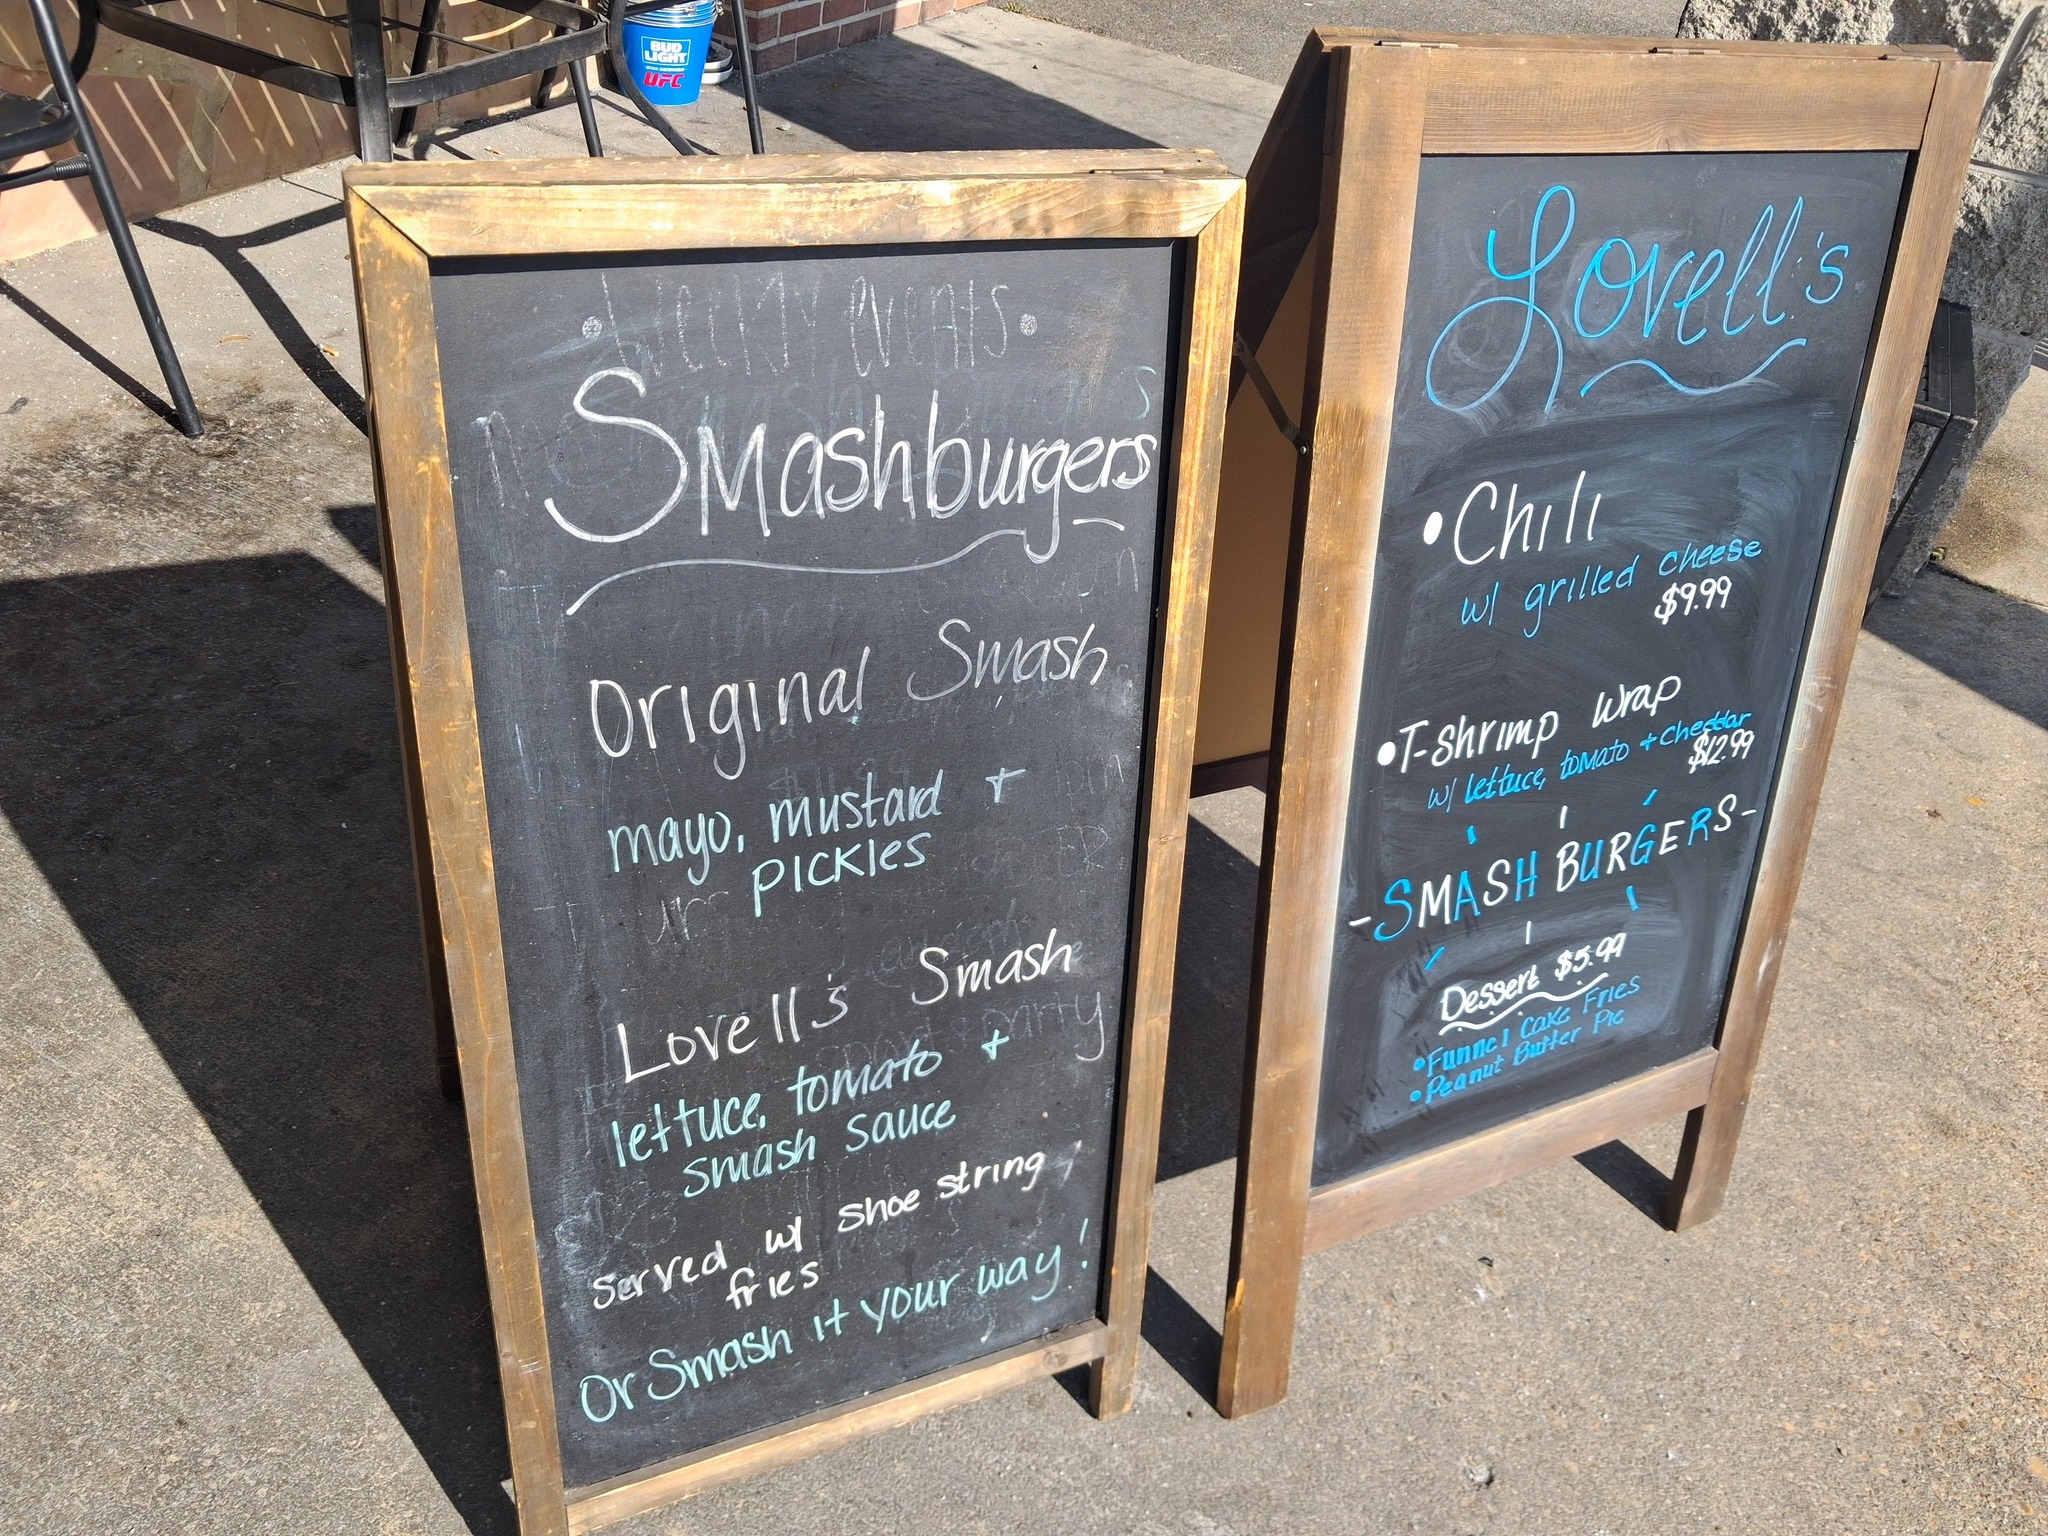 BUD
LIGHT
UFC
• Weekly events •
Smashburgers
Original Smash
mayo, mustard +
pickles
Lovell's Smash
lettuce, tomato +
smash sauce
served w/ shoe string
fries
Or Smash it your way!
Lovell's
• Chili
w/ grilled cheese
$9.99
• T-shrimp wrap
w/ lettuce, tomato + cheddar
$12.99
- SMASH BURGERS -
Dessert $5.99
• Funnel Cake Fries
• Peanut Butter Pie